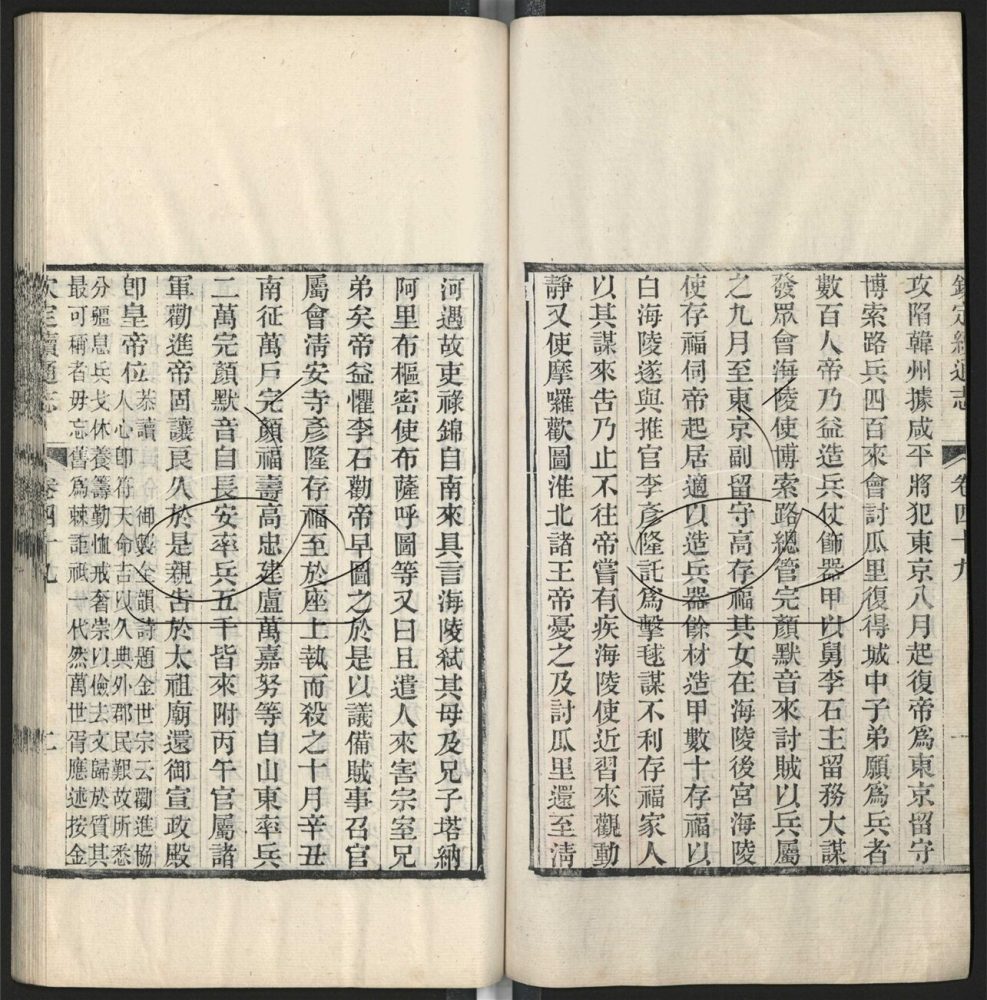 欽定續通志 卷四十九
攻陷韓州據咸平將犯東京八月起復帝爲東京留守
博索路兵四百來會討瓜里復得城中子弟願爲兵者
數百人帝乃益造兵仗飾器甲以舅李石主留務大謀
發眾會海陵使博索路總管完顏默音來討賊以兵屬
之九月至東京副留守高存福其女在海陵後宮海陵
使存福伺帝起居適以造兵器餘材造甲數十存福以
白海陵遂與推官李彥隆託爲擊毬謀不利存福家人
以其謀來告乃止不往帝嘗有疾海陵使近習來觀動
靜又使摩囉歡圖淮北諸王帝憂之及討瓜里還至淸
河遇故吏祿錦自南來具言海陵弑其母及兄子塔納
阿里布樞密使布薩呼圖等又曰且遣人來害宗室兄
弟矣帝益懼李石勸帝早圖之於是以議備賊事召官
屬會淸安寺彥隆存福至於座上執而殺之十月辛丑
南征萬戶完顏福壽高忠建盧萬嘉努等自山東率兵
二萬完顏默音自長安率兵五千皆來附丙午官屬諸
軍勸進帝固讓良久於是親告於太祖廟還御宣政殿
卽皇帝位
恭讀 御製全韻詩題金世宗云勸進協
人心卽符天命吉以久典外郡民艱故所悉
分疆息兵戈休養籌勤恤戒奢崇以儉去文歸於質其
最可稱者毋忘舊爲棘詎祇一代然萬世胥應述按金
欽定續通志 卷四十九 二